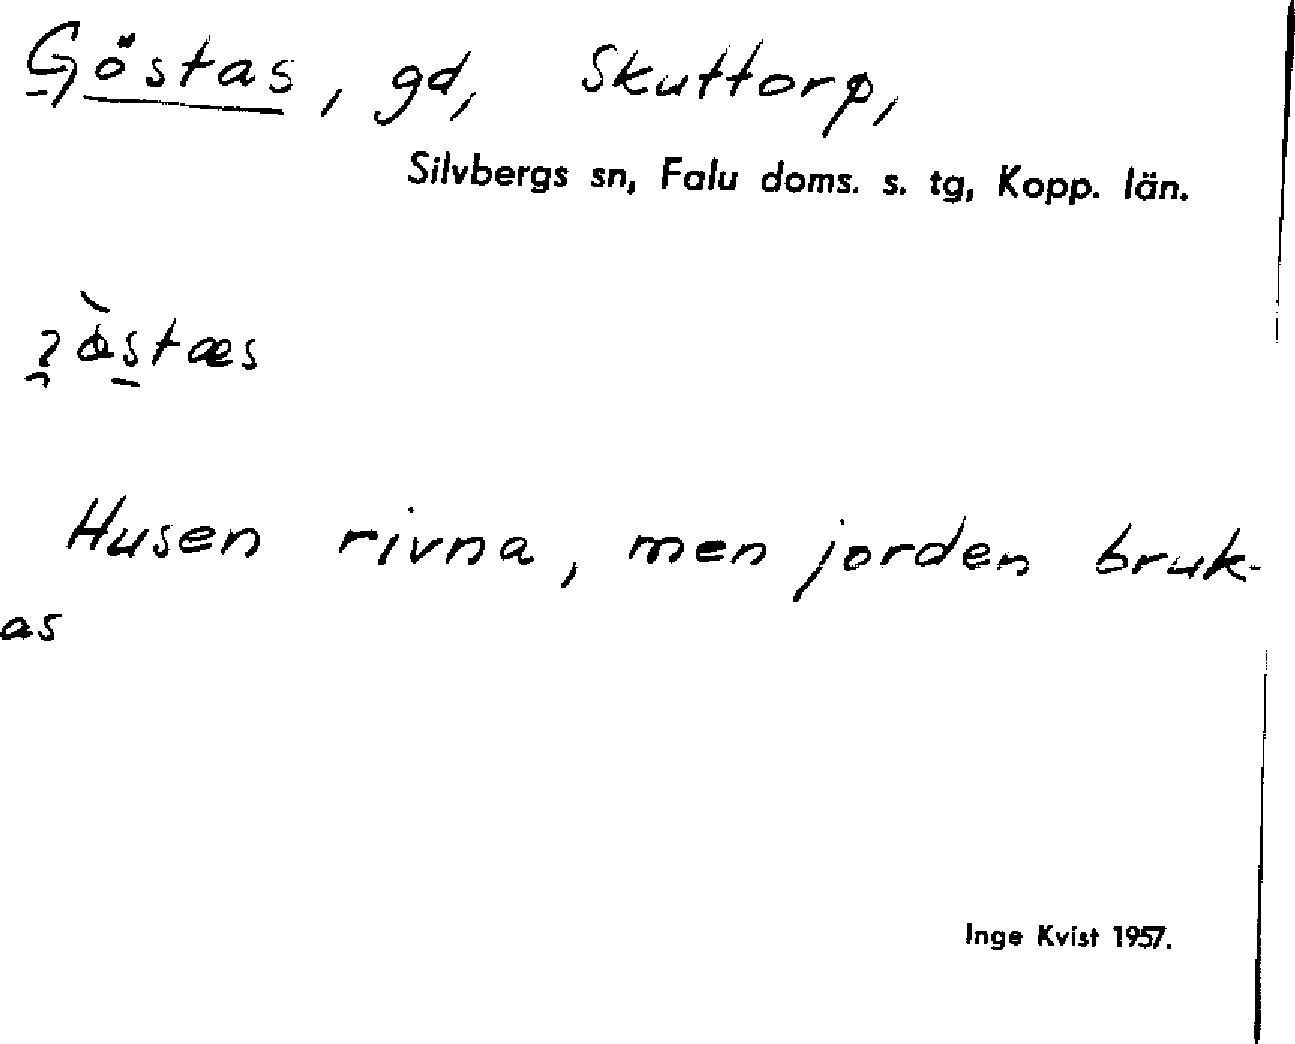 Göstas, gd, Skuttorp,
Silvbergs sn, Falu doms. s. tg, Kopp. län.
Husen rivna, men jorden bruk-
as
Inge Kvist 1957.